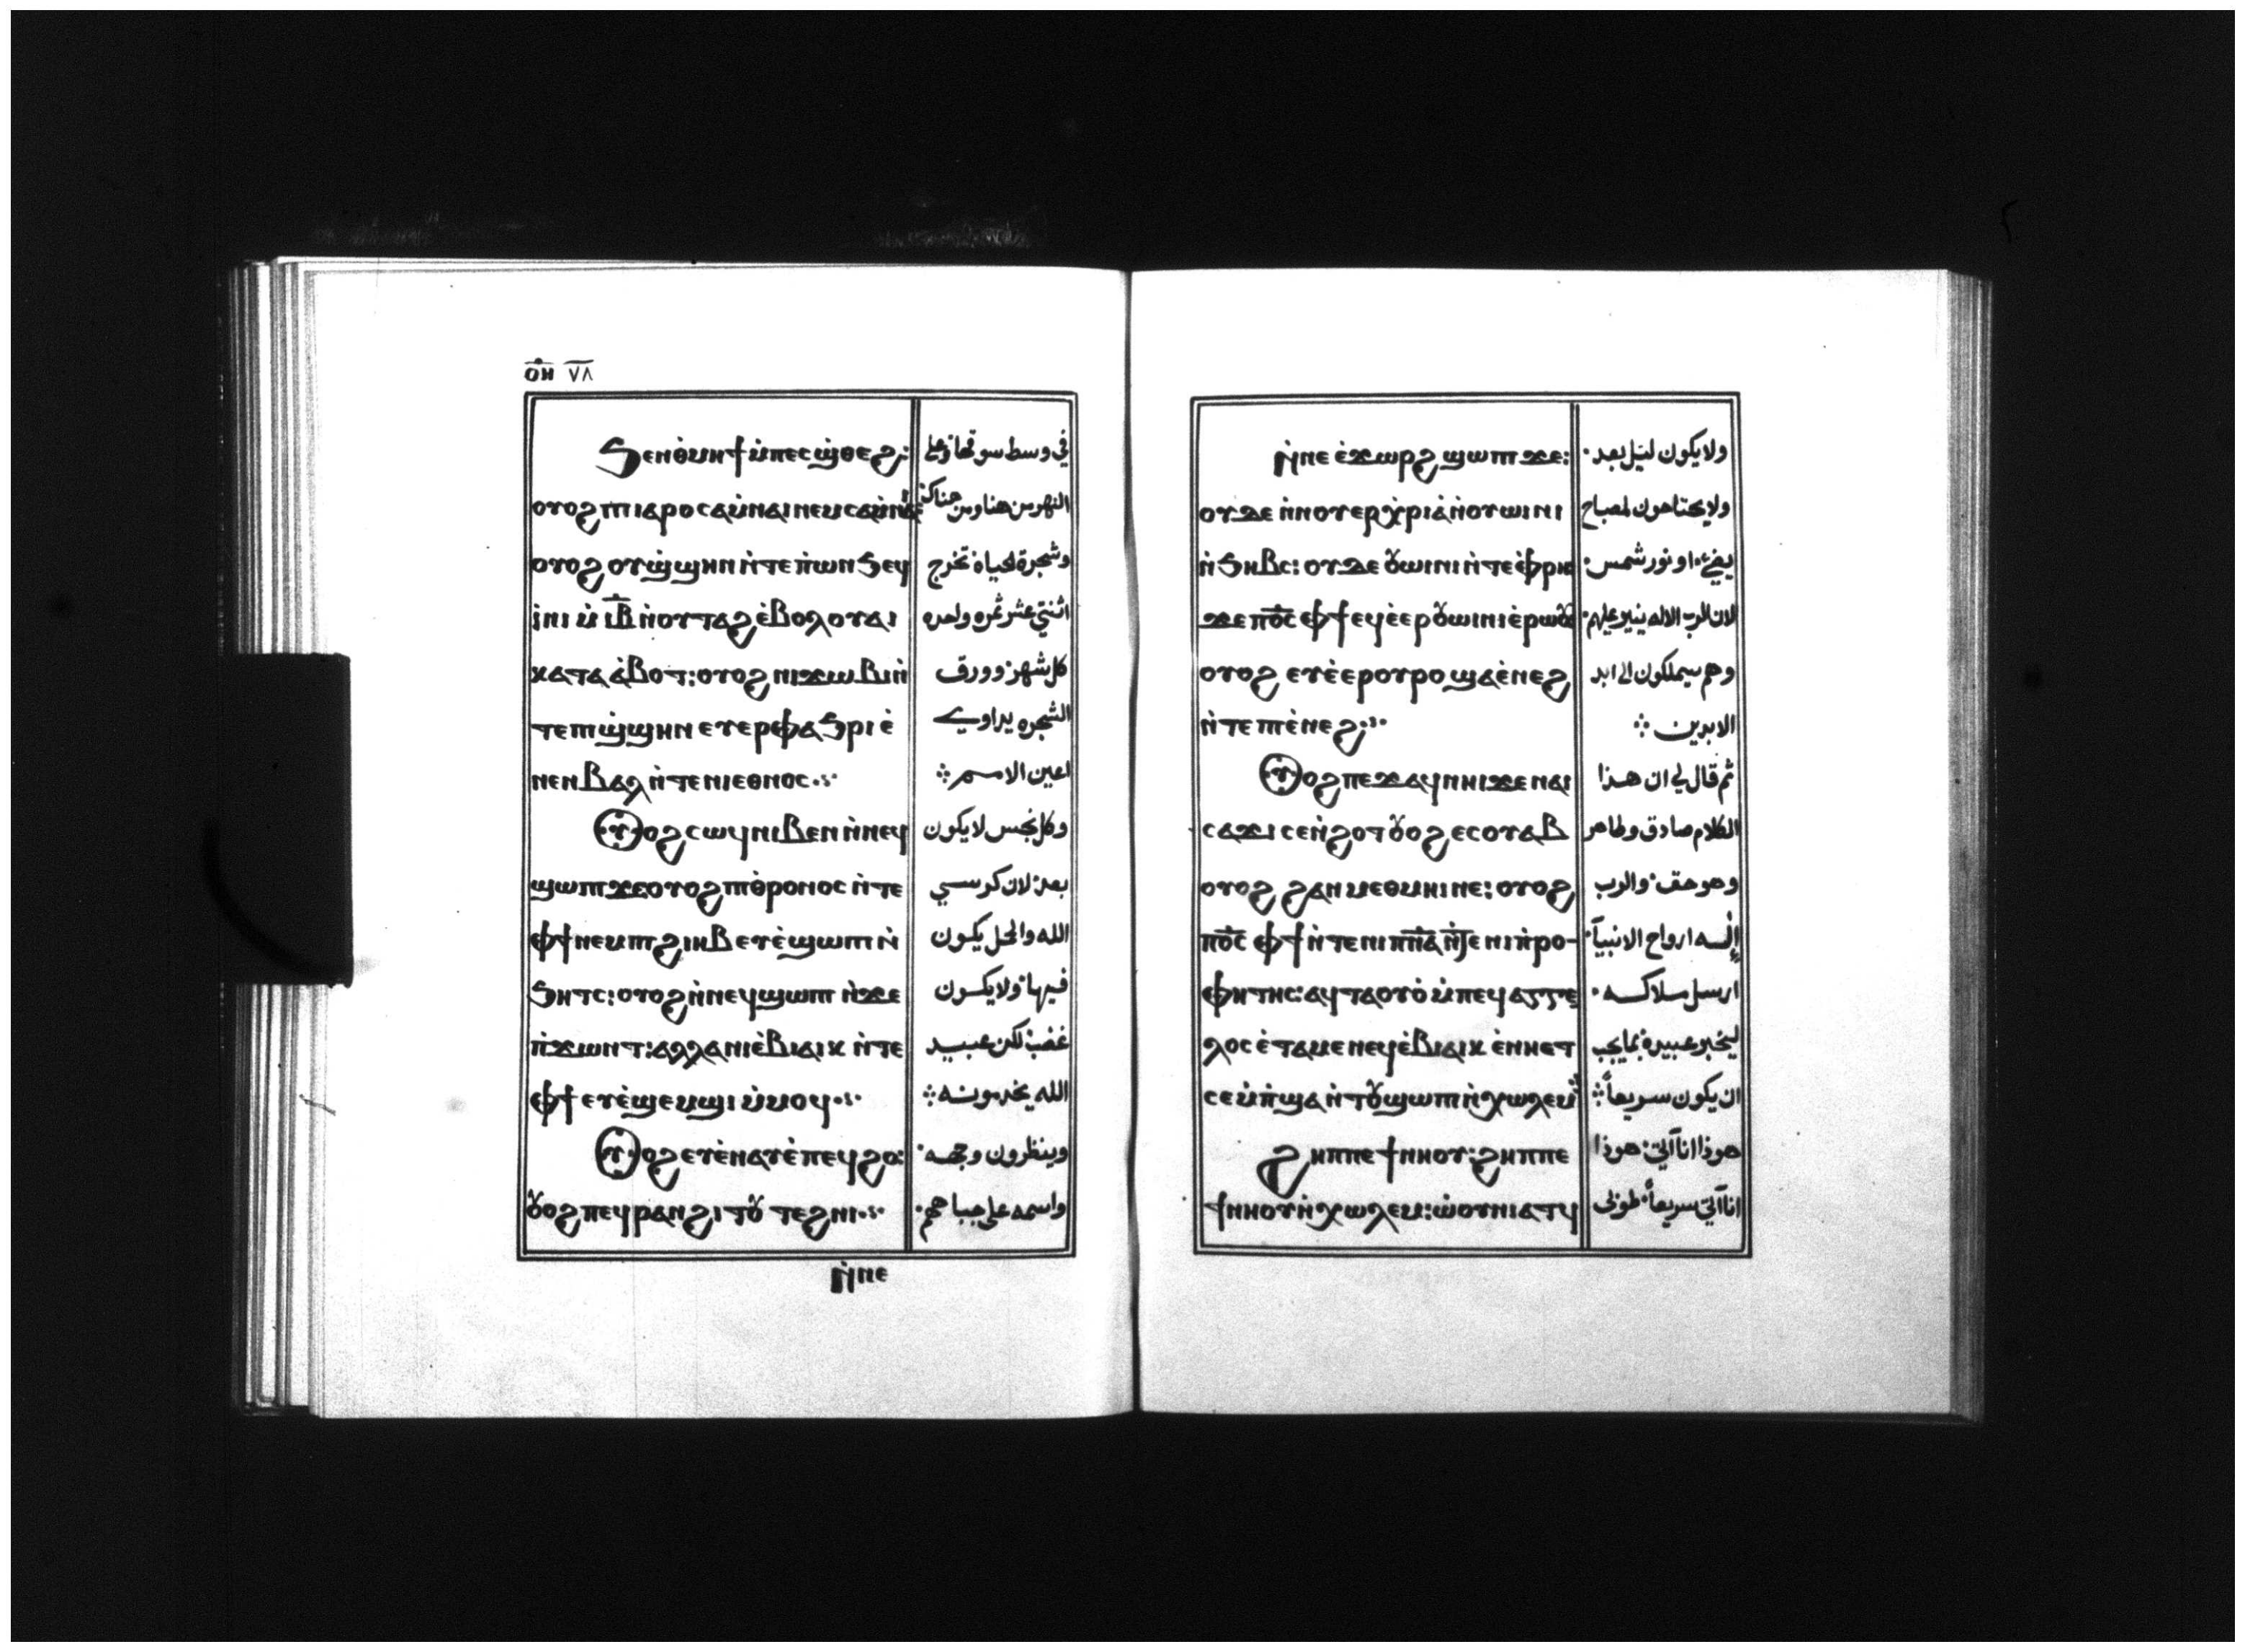 ⲟ̅ⲏ̅ ٧٨
ϧⲉⲛⲑ̀ⲙⲏϯⲙ̀ⲡⲉⲥϣ̀ⲑⲉϩ: في وسط سوقها وعلي
ⲟⲩⲟϩⲡⲓⲓⲁⲣⲟⲥⲁⲙ̀ⲛⲁⲓⲛⲉⲙⲥⲁⲙ̀ⲛⲏ: النهر من هنا ومن هناك
ⲟⲩⲟϩⲟⲩϣ̀ϣⲏⲛⲛ̀ⲧⲉⲡ̀ⲱⲛϧⲉϥ وشجرة لحياة تخرج
ⲓ̀ⲛⲓⲙ̀ⲓ̅ⲃ̅ⲛ̀ⲟⲩⲧⲁϩⲉ̀ⲃⲟⲗⲟⲩⲁⲓ اثنتي عشر ثمره واحده
ⲕⲁⲧⲁⲁ̀ⲃⲟⲧ:ⲟⲩⲟϩⲛⲓϫⲱⲃⲓⲛ̀ كل شهر وورق
ⲧⲉⲡⲓϣ̀ϣⲏⲛⲉⲩⲉⲣⲫⲁϧⲣⲓⲉ̀ الشجره يداوي
ⲛⲉⲛⲃⲁⲗⲛ̀ⲧⲉⲛⲓⲉⲑⲛⲟⲥ اعين الامم
ⲟⲩⲟϩⲥⲱϥⲛⲓⲃⲉⲛⲛ̀ⲛⲉϥ وكل نجس لا يكون
ϣⲱⲡⲓϫⲉⲟⲩⲟϩⲡⲓⲑ̀ⲣⲟⲛⲟⲥⲛ̀ⲧⲉ بعد لان كرسي
ⲫϯⲛⲉⲙⲡⲓϩⲓⲏⲃⲉⲩⲉ̀ϣⲱⲡⲓⲛ̀ الله والحمل يكون
ϧⲏⲧⲥ:ⲟⲩⲟϩⲛ̀ⲛⲉϥϣⲱⲡⲓⲛ̀ϫⲉ فيها ولا يكون
ⲡ̀ϫⲱⲛⲧ:ⲁⲗⲗⲁⲛⲓⲉ̀ⲃⲓⲁⲓⲕⲛ̀ⲧⲉ غضب لكن عبيد
ⲫϯⲉⲩⲉ̀ϣⲉⲙϣⲓⲙ̀ⲙⲟϥ الله يخدمونه
ⲟⲩⲟϩⲉⲩⲉ̀ⲛⲁⲩⲉ̀ⲡⲉϥϩⲟ: وينظرون وجهه
ⲟⲩⲟϩⲡⲉϥⲣⲁⲛϩⲓⲧⲟⲩ ⲧⲉϩⲛⲓ واسمه على جباههم
ⲛ̀ⲛⲉ
ⲛ̀ⲛⲉⲉ̀ϫⲱⲣϩϣⲱⲡⲓϫⲉ: ولا يكون ليل بعد
ⲟⲩⲇⲉⲛ̀ⲛⲟⲩⲉⲣⲭ̀ⲣⲓⲁ̀ⲛ̀ⲟⲩⲱⲓⲛⲓ ولا يحتاجون لمصباح
ⲛ̀ϧⲏⲃⲥ:ⲟⲩⲇⲉⲟⲩⲱⲓⲛⲓⲛ̀ⲧⲉⲫ̀ⲣⲏ يضيء او نور شمس
ϫⲉⲡ̅ⲟ̅ⲥ̅ⲫϯⲉϥⲉ̀ⲉⲣⲟⲩⲱⲓⲛⲓⲉ̀ⲣⲱⲟⲩ لان الرب الاله ينير عليهم
ⲟⲩⲟϩⲉⲩⲉ̀ⲉⲣⲟⲩⲣⲟϣⲁⲉ̀ⲛⲉϩ وهم سيملكون الى ابد
ⲛ̀ⲧⲉⲡⲓⲉ̀ⲛⲉϩ الابدين
ⲟⲩⲟϩⲡⲉϫⲁϥⲛⲏⲓϫⲉⲛⲁⲓ ثم قال لي ان هذا
ⲥⲁϫⲓⲥⲉⲛ̀ϩⲟⲧⲟⲩⲟϩⲉⲥⲟⲩⲁⲃ الكلام صادق وطاهر
ⲟⲩⲟϩϩⲁⲛⲙⲉⲑⲙⲏⲓⲛⲉ:ⲟⲩⲟϩ وهو حق والرب
ⲡ̅ⲟ̅ⲥ̅ⲫϯⲛ̀ⲧⲉⲛⲓⲡ̅ⲛ̅ⲁ̅ⲛ̀ⲧⲉⲛⲓⲡ̀ⲣⲟ- إله ارواح الانبيآ
ⲫⲏⲧⲏⲥ:ⲁϥⲧⲁⲟⲩⲟ̀ⲙ̀ⲡⲉϥⲁⲅⲅⲉ ارسل ملاكه
ⲗⲟⲥⲉ̀ⲧⲁⲙⲉⲛⲉϥⲉ̀ⲃⲓⲁⲓⲕⲉ̀ⲛⲏⲉⲧ ليخبر عبيده بما يجب
ⲥⲉⲙ̀ⲡ̀ϣⲁⲛ̀ⲧⲟⲩϣⲱⲡⲓⲛ̀ⲭⲱⲗⲉⲙ ان يكون سريعاً
ϩⲏⲡⲡⲉϯⲛⲏⲟⲩ:ϩⲏⲡⲡⲉ هوذا انا آتي هوذا
ϯⲛⲏⲟⲩⲛ̀ⲭⲱⲗⲉⲙ:ⲱ̀ⲟⲩⲛⲓⲁⲧϥ انا آتي سريعاً طوبى